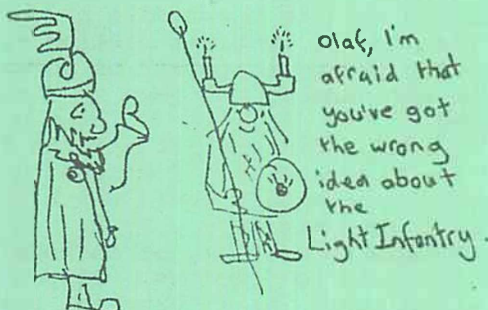 Olaf, I'm
afraid that
you've got
the wrong
idea about
the
Light Infantry.